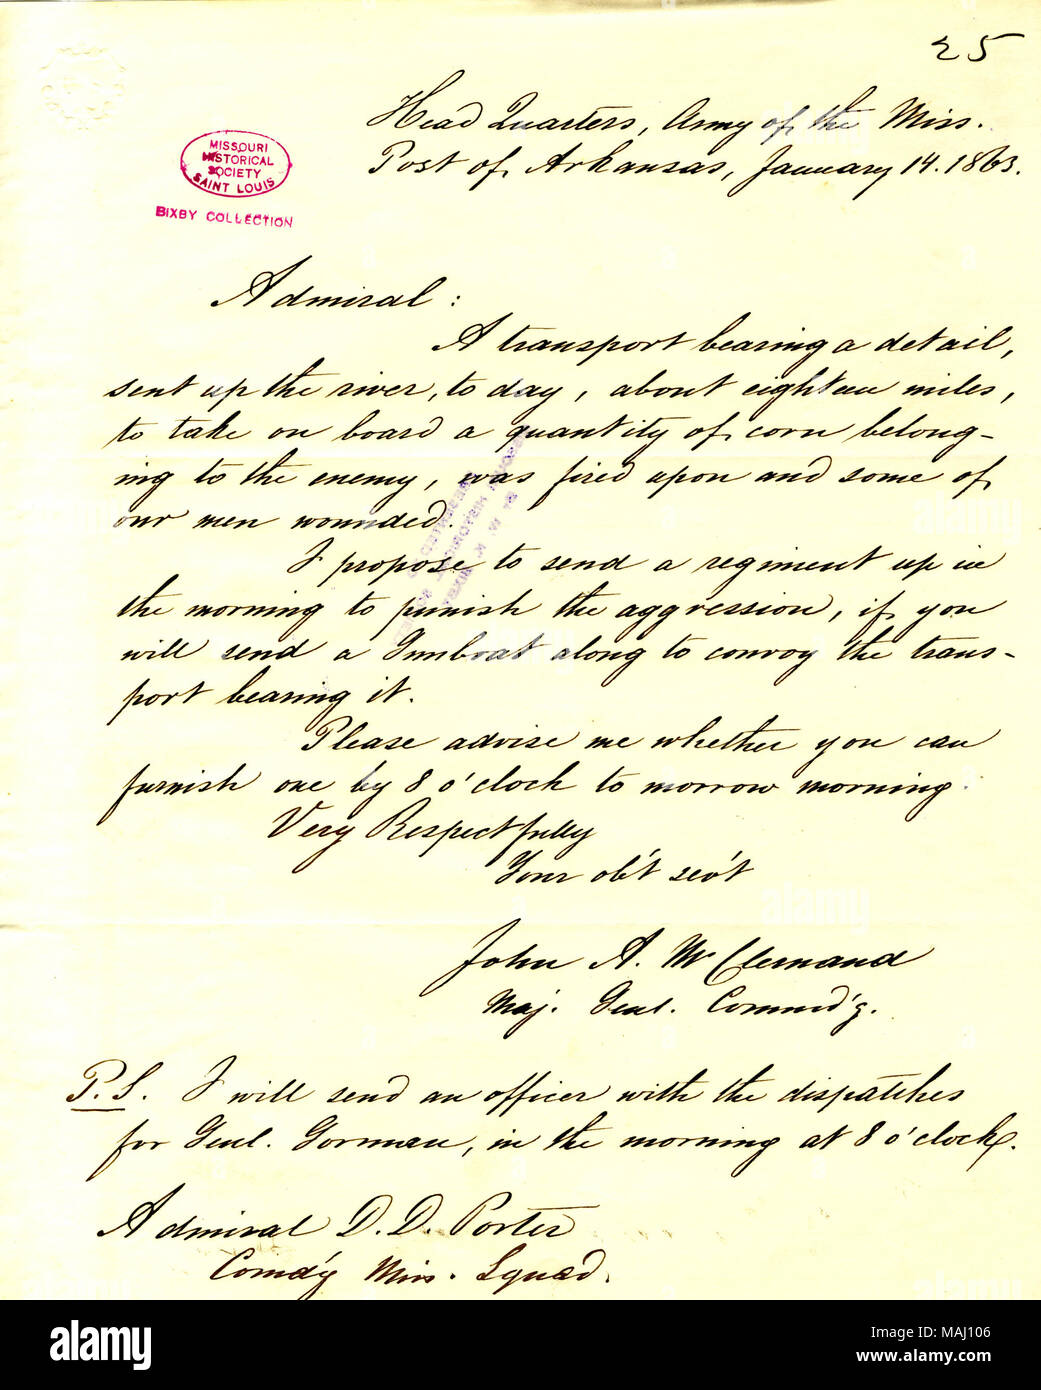 25
Head Quarters, Army of the Miss.
Post of Arkansas, January 14. 1863.
MISSOURI
HISTORICAL
SOCIETY
SAINT LOUIS
BIXBY COLLECTION
Admiral :
A transport bearing a detail,
sent up the river, to day, about eighteen miles,
to take on board a quantity of corn belong-
ing to the enemy, was fired upon and some of
our men wounded.
I propose to send a regiment up in
the morning to punish the aggression, if you
will send a Gunboat along to convoy the trans-
port bearing it.
Please advise me whether you can
furnish one by 8 o'clock to morrow morning.
Very Respectfully
Your ob't serv't
John A. McClernand
Maj. Genl. Commd'g.
P.S. I will send an officer with the dispatches
for Genl. Gorman, in the morning at 8 o'clock.
Admiral D. D. Porter
Comd'g Miss. Squad.
alamy
Image ID: MAJ106
www.alamy.com